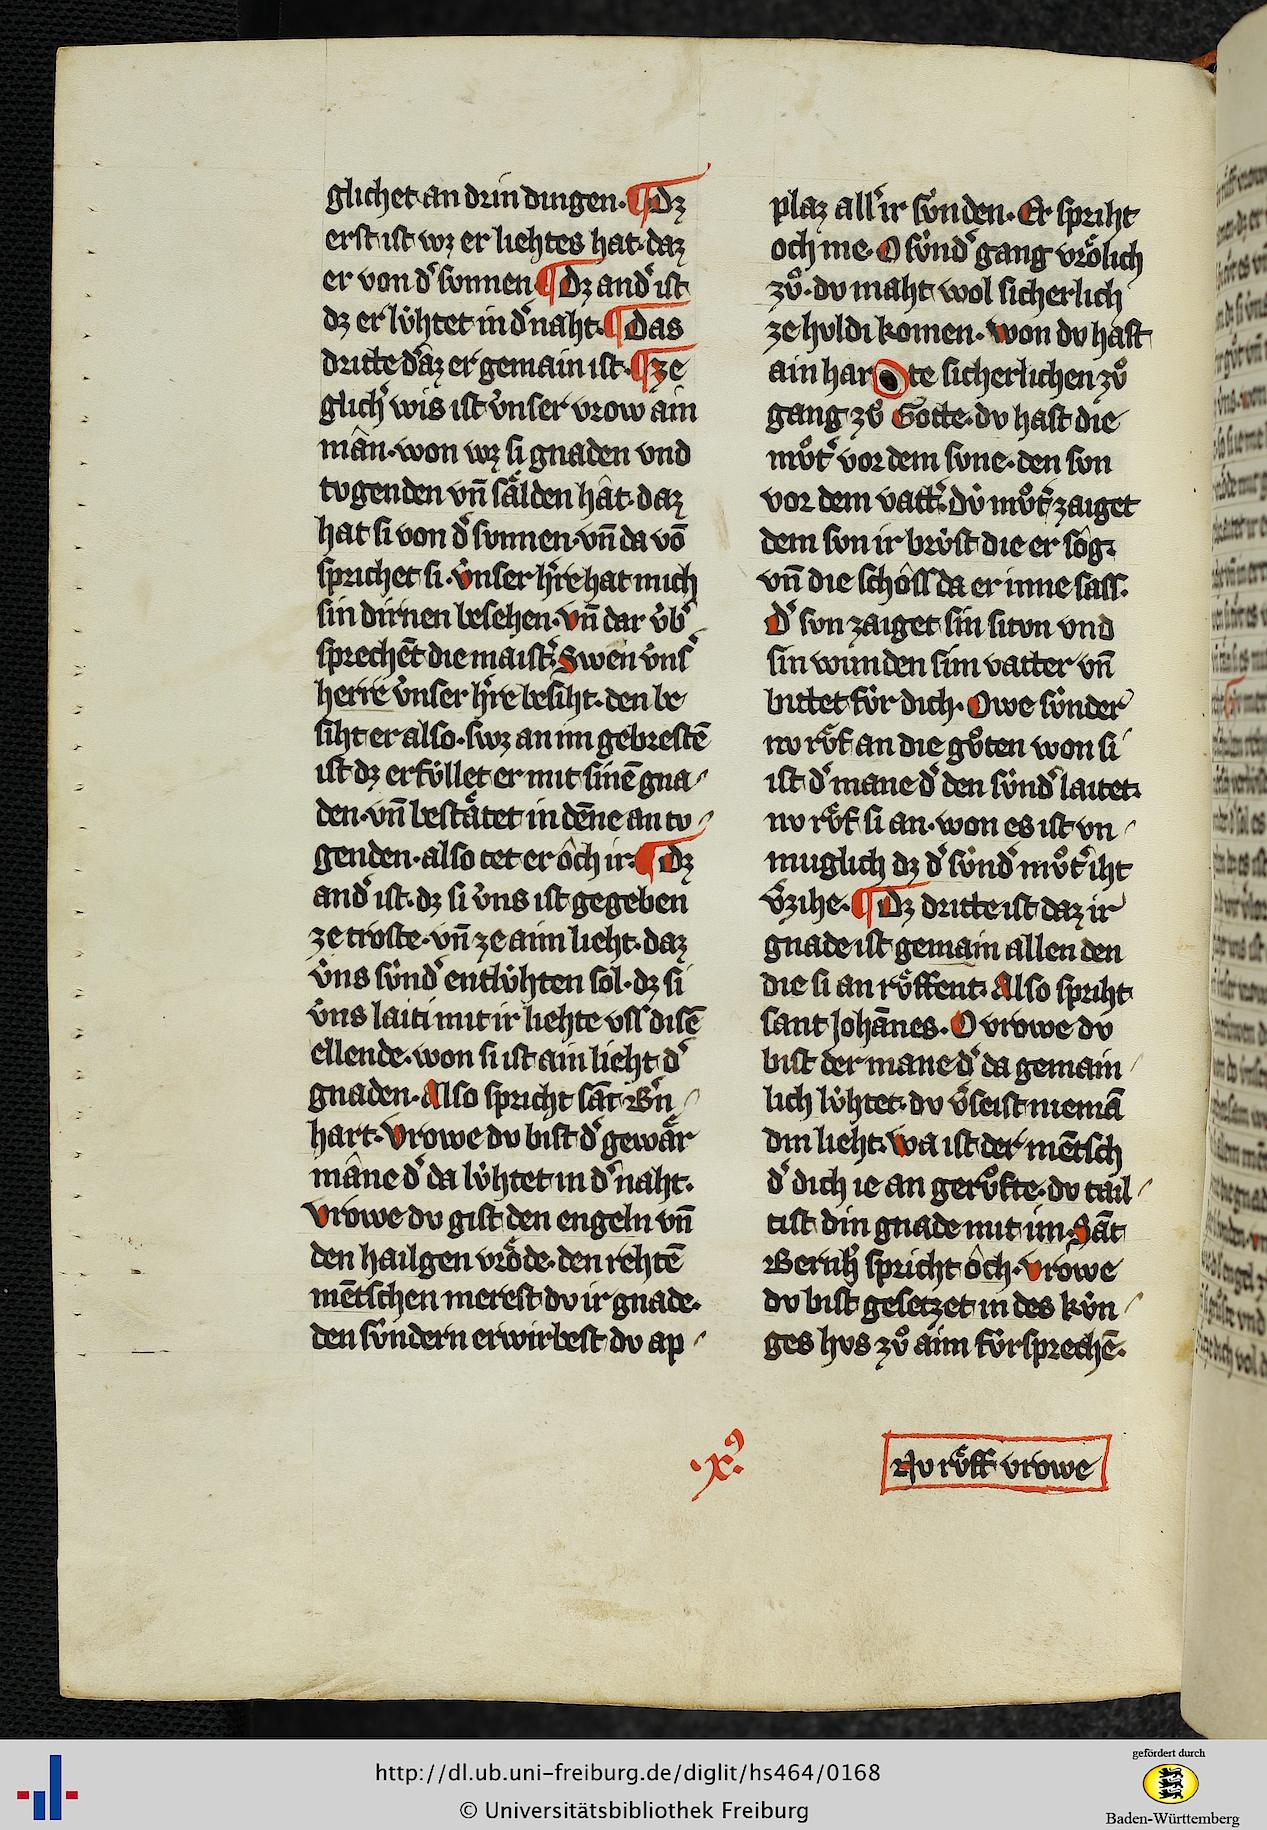 glichet an drin dingen. ¶ Dz
erst ist wz er liehtes hat. daz
er von dˀ sunnen. ¶ Dz andˀ ist
dz er lv́htet in dˀ naht. ¶ Das
dritte daz er gemain ist. ¶ ze
glichˀ wis ist v́nser vrow ain
mân. won wz si gnaden vnd
tvgenden vn̄ sâ̈lden hât. daz
hat si von dˀ svnnen. vn̄ da vō
sprichet si. v́nser hˀre hat mich
sin dirnen besehen. vn̄ dar v́bˀ
sprechēt die maistˀ. Swen v́nsˀ
herre v́nser hˀre besiht. den be
siht er also. swz an im gebrestē
ist dz erfv́llet er mit sinē gna⸗
den. vn̄ bestä́tet in dēne an tv⸗
genden. also tet er ôch ir. ¶ Dz
andˀ ist. dz si v́ns ist gegeben
ze troste. vn̄ ze aim lieht. daz
v́ns sv́ndˀ entlv́hten sol. dz si
v́ns laiti mit ir liehte vss disē
ellende. won si ist ain lieht dˀ
gnaden. Also spricht sāt Bˀn⸗
hart. Vrowe dv bist dˀ gewär
mâne dˀ da lv́htet in dˀ naht.
Vrowe dv gist den engeln vn̄
den hailgen vrö́de. den rehtē
mētschen merest dv ir gnade.
den sv́ndern erwirbest dv ap⸗
plaz allˀ ir sv́nden. Er spriht
och me. O sv́ndˀ gang vrö́lich
zv̊. dv maht wol sicherlich
ze hvldi komen. Won dv hast
ain har te sicherlichen zv̊
gang zv̊ Gotte. dv hast die
mv̊tˀ vor dem svne. den svn
vor dem vattˀ. Dv́ mv̊tˀ zaiget
dem svn ir brv́st die er sôg.
vn̄ die schôss da er inne sass.
Dˀ svn zaiget sin siton vnd
sin wunden sim vatter vn̄
bittet fv́r dich. Owe sv́nder
nv rv̊f an die gv̊ten won si
ist dˀ mane dˀ den sv́ndˀ laitet.
nv rv̊f si an. won es ist vn⸗
muglich dz dˀ sv́ndˀ mv̊tˀ iht
vˀzihe. ¶ Dz dritte ist daz ir
gnade ist gemain allen den
die si an rv̊ffent. Also spriht
sant Johānes. O vrowe dv
bist der mane dˀ da gemain⸗
lich lv́htet. dv vˀseist niemā
din lieht. Wa ist der mētsch
dˀ dich ie an gerv̊fte. dv tail⸗
tist din gnade mit im. Sāt
Bernhˀ spricht ôch. Vrowe
dv bist gesetzet in des kv́n⸗
ges hvs zv̊ aim fv́rsprechē.
.xꝰ.
Nv rv̊ff vrowe
http://dl.ub.uni-freiburg.de/diglit/hs464/0168
© Universitätsbibliothek Freiburg
gefördert durch
Baden-Württemberg